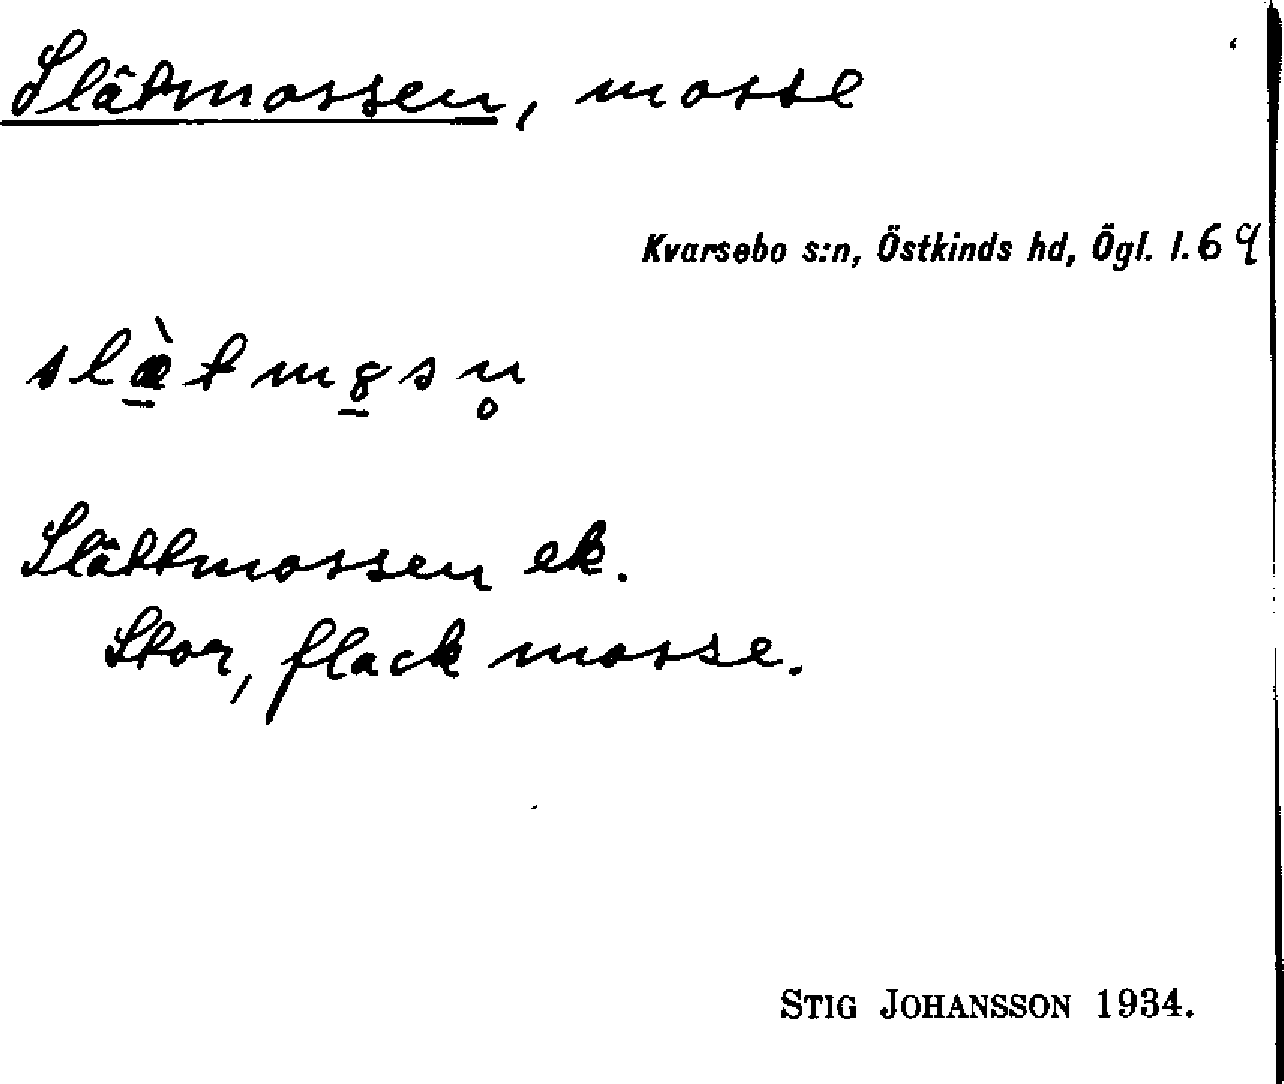 Slätmossen, mosse
Kvarsebo s:n, Östkinds hd, Ögl. l. 69
Slättmossen ek.
Stor, flack mosse.
STIG JOHANSSON 1934.